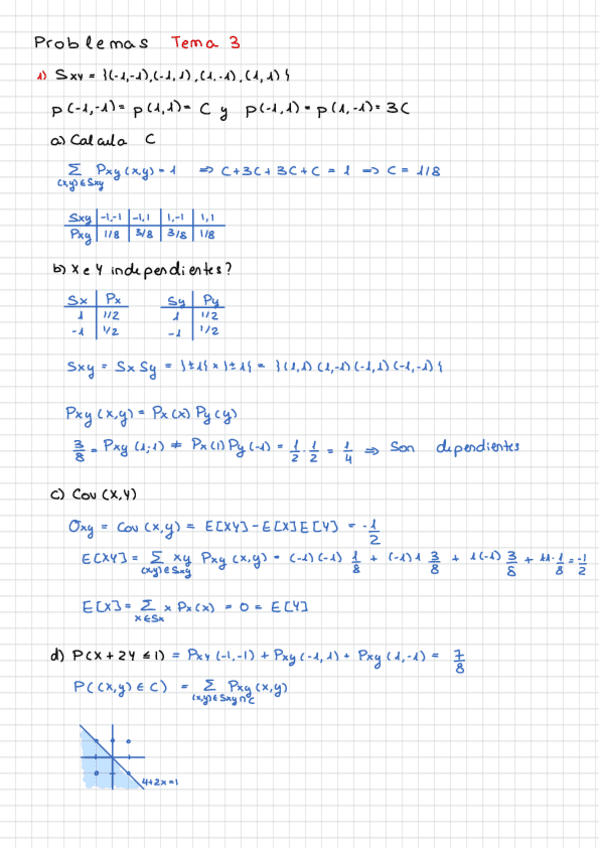 Problemas Tema 3
1) Sxy = {(-1,-1),(-1,1),(1,-1),(1,1)}
p(-1,-1)= p(1,1)= C y p(-1,1)= p(1,-1)= 3C
a) Calcula C
Σ Pxy(x,y)=1 ⇒ C+3C+3C+C = 1 ⇒ C = 1/8
(x,y)∈Sxy
Sxy | -1,-1 | -1,1 | 1,-1 | 1,1
Pxy | 1/8 | 3/8 | 3/8 | 1/8
b) X e Y independientes?
Sx | Px Sy | Py
1 | 1/2 1 | 1/2
-1 | 1/2 -1 | 1/2
Sxy = Sx Sy = {±1} x {±1} = {(1,1)(1,-1)(-1,1)(-1,-1)}
Pxy(x,y)= Px(x) Py(y)
3/8 = Pxy(1,-1) ≠ Px(1) Py(-1) = 1/2 · 1/2 = 1/4 ⇒ Son dependientes
c) Cov(X,Y)
σxy = Cov(x,y) = E[XY] - E[X]E[Y] = -1/2
E[XY] = Σ xy Pxy(x,y) = (-1)(-1) 1/8 + (-1)1 3/8 + 1(-1) 3/8 + 1·1·1/8 = -1/2
(x,y)∈Sxy
E[X] = Σ x Px(x) = 0 = E[Y]
x∈Sx
d) P(X + 2Y ≤ 1) = Pxy(-1,-1) + Pxy(-1,1) + Pxy(1,-1) = 7/8
P((x,y) ∈ C) = Σ Pxy(x,y)
(x,y)∈Sxy∩C
y+2x=1